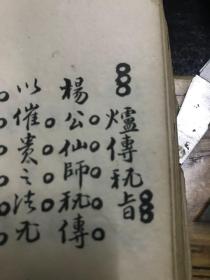 爐傳秘旨
楊公仙師秘傳
以催貴之法